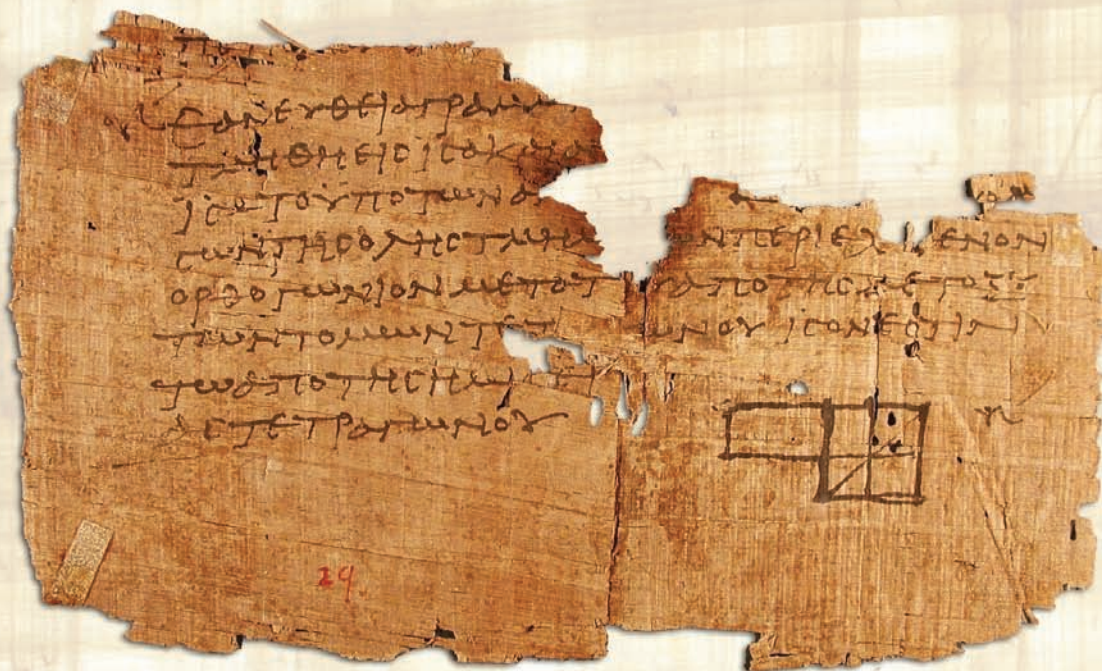 ΕΑΝΕΥΘΕΙΑΓΡΑΜΜ
ΤΜΗΘΗΕΙϹΙϹΑΚΑΙΑ
ΙϹΑΤΟΥΠΟΤΩΝΑ
ϹΩΝΤΗϹΟΛΗϹΤΜΗΜ ΩΝΠΕΡΙΕΧ ΜΕΝΟΝ
ΟΡΘΟΓΩΝΙΟΝΜΕΤΑΤΟΥΑΠΟΤΗϹΜΕΤΟΞΥ
ΤΩΝΤΟΜΩΝΤΕΤ ΩΝΟΥΙϹΟΝΕϹΤΙΝ
ΤΩΑΠΟΤΗϹΗΜΙ
ΑϹΤΕΤΡΑΓΩΝΟΥ
29.